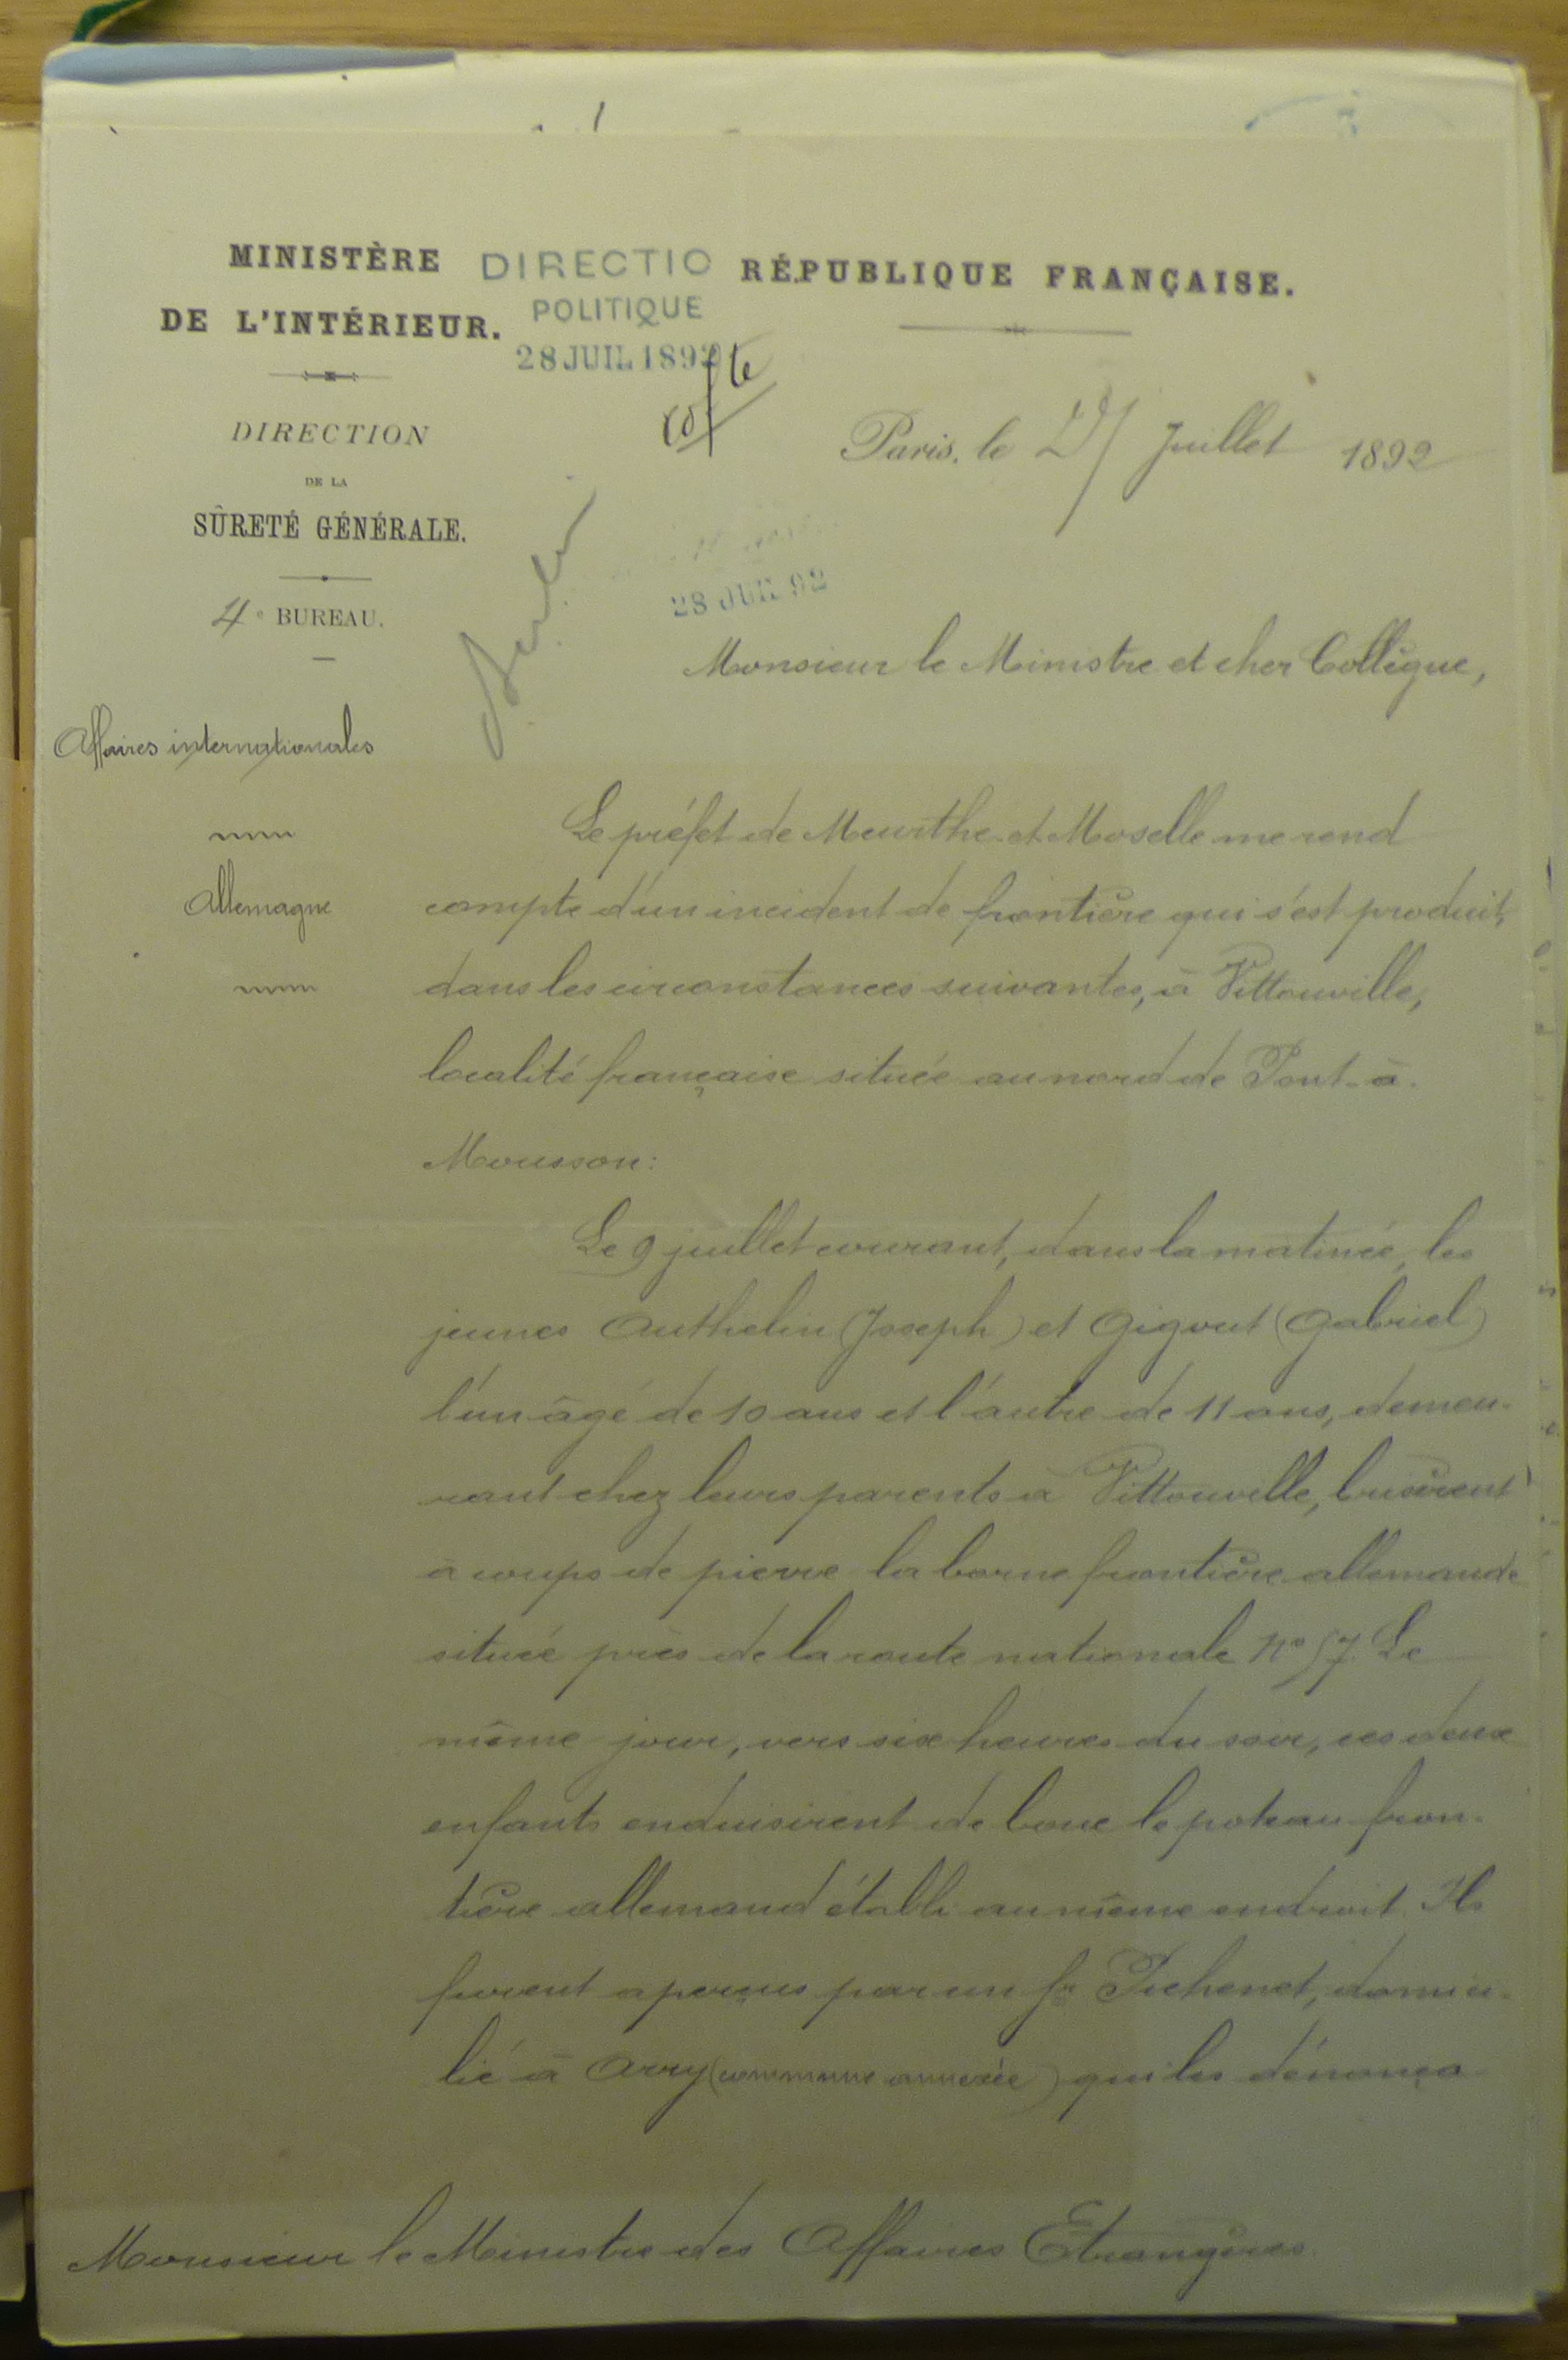 MINISTÈRE
DE L'INTÉRIEUR.
DIRECTIO
POLITIQUE
28 JUIL 1892
RÉPUBLIQUE FRANÇAISE.
DIRECTION
DE LA
SÛRETÉ GÉNÉRALE.
4e BUREAU.
Paris, le 27 Juillet 1892
Berlin
28 JUIL 92
Monsieur le Ministre et cher Collègue,
Affaires internationales
Allemagne
Le préfet de Meurthe-et-Moselle me rend
compte d'un incident de frontière qui s'est produit,
dans les circonstances suivantes, à Vittonville,
localité française située au nord de Pont-à-
Mousson:
Le 9 juillet courant, dans la matinée, les
jeunes Anthelin (Joseph) et Gigout (Gabriel)
l'un âgé de 10 ans et l'autre de 11 ans, demeu-
rant chez leurs parents à Vittonville, brisèrent
à coups de pierre la borne frontière allemande
située près de la route nationale No 57. Le
même jour, vers six heures du soir, ces deux
enfants enduisirent de boue le poteau fron-
tière allemand établi au même endroit. Ils
furent aperçus par un sr Pichenet, domici-
lié à Arry (commune annexée) qui les dénonça
Monsieur le Ministre des Affaires Etrangères